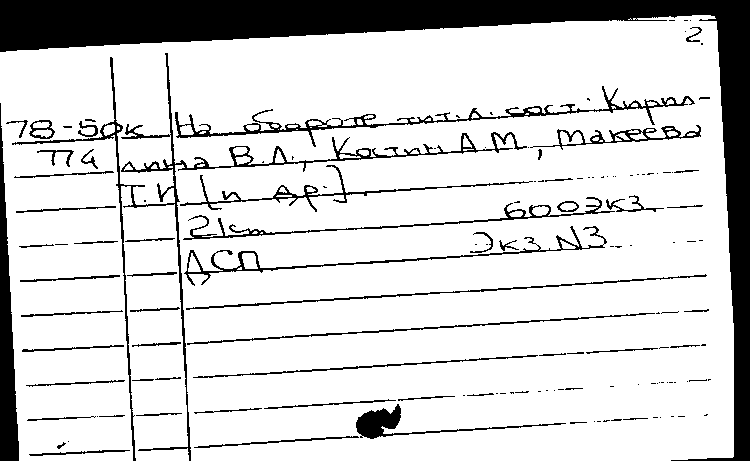 2
78-50к На обороте тит. л. сост.: Кирил-
774 лина В.Л., Костин А.М., Макеева
Т.И. [и др.].
21cm 600экз.
ДСП Экз. N3